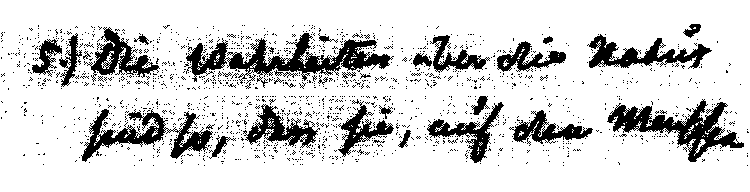 5.) Die Wahrheiten über die Natur
sind so, dass sie, auf den Menschen